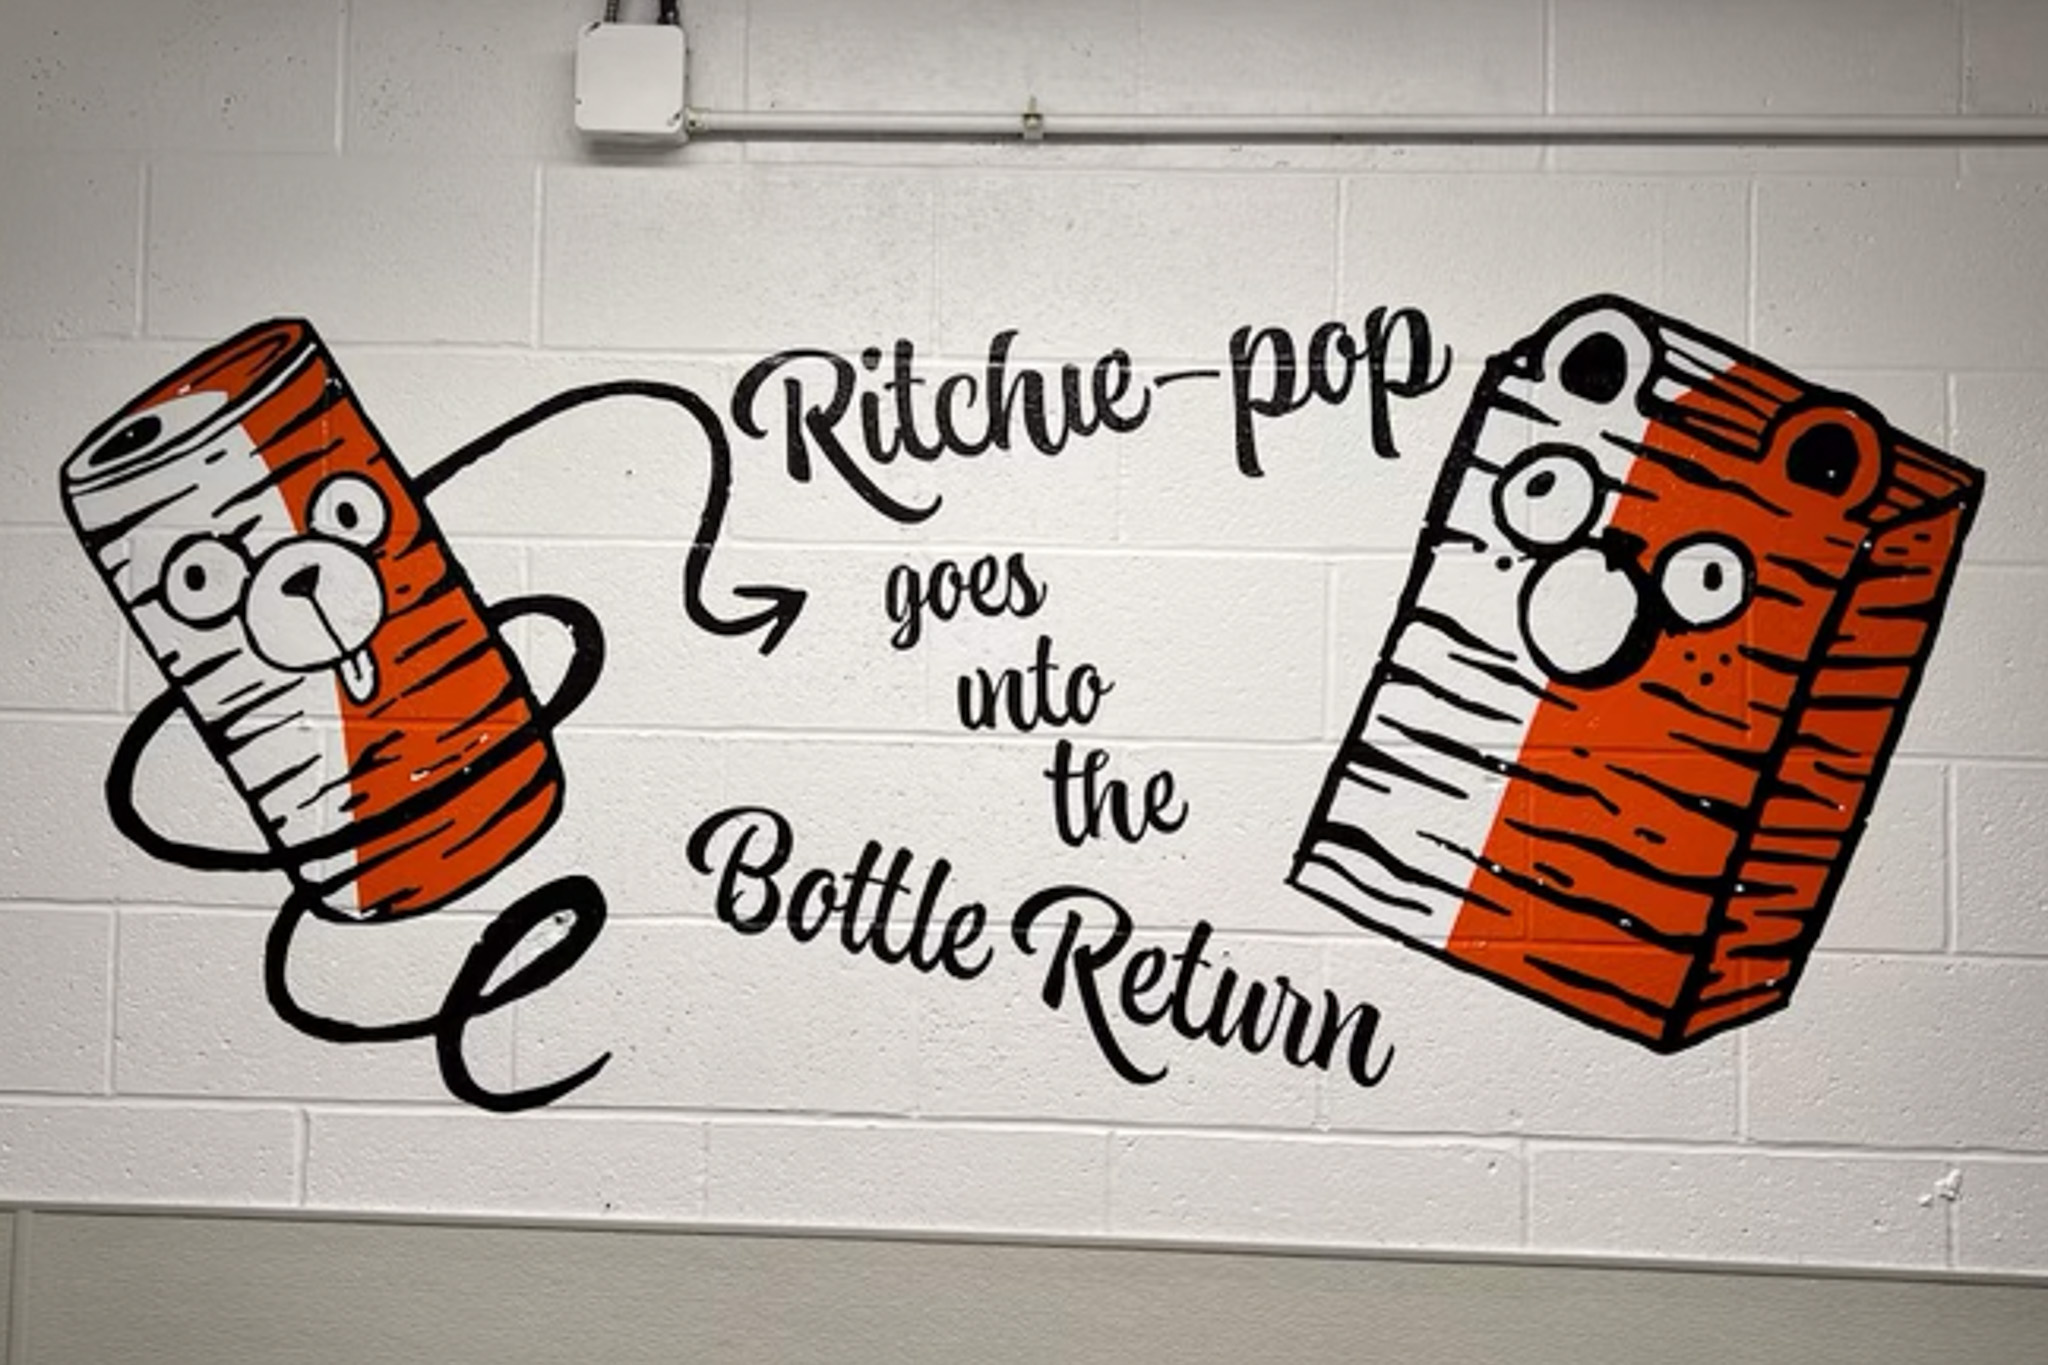 Ritchie-pop
goes
into
the
Bottle Return